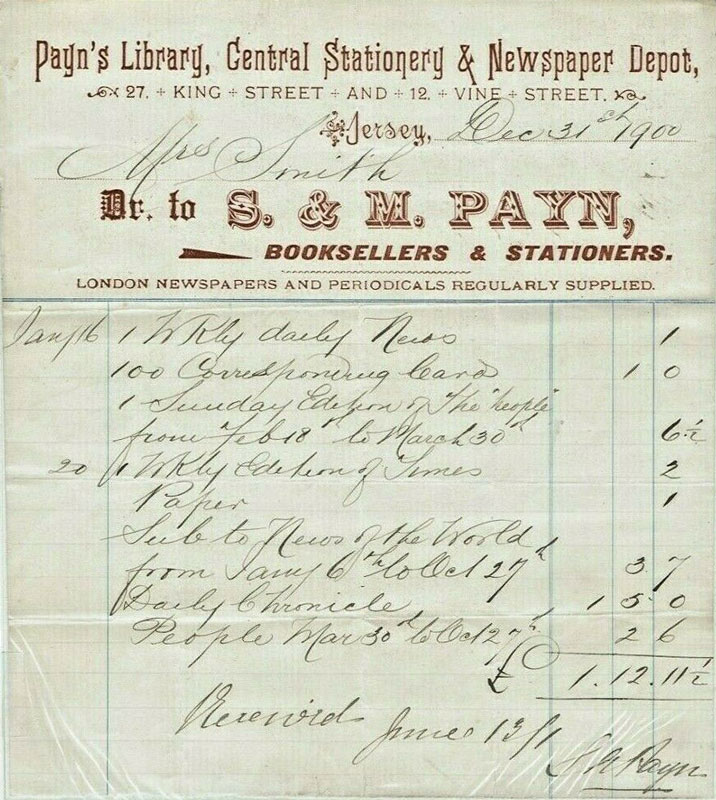 Payn's Library, Central Stationery & Newspaper Depot,
27. + KING + STREET + AND + 12. + VINE + STREET.
Jersey, Dec 31st 1900
Mrs Smith
Dr. to S. & M. PAYN,
BOOKSELLERS & STATIONERS.
LONDON NEWSPAPERS AND PERIODICALS REGULARLY SUPPLIED.
Jany 16 1 Wkly daily News 1
100 Corresponding Cards 1 0
1 Sunday Edition of "The People"
from Feb 18th to March 30th 6½
20 1 Wkly Edition of Times 2
Paper 1
Sub to News of the World
from Jany 6th to Oct 27th 3 7
Daily Chronicle 1 5 0
People Mar 30th to Oct 27th 2 6
£ 1. 12. 11½
Received June 13/1
Payn